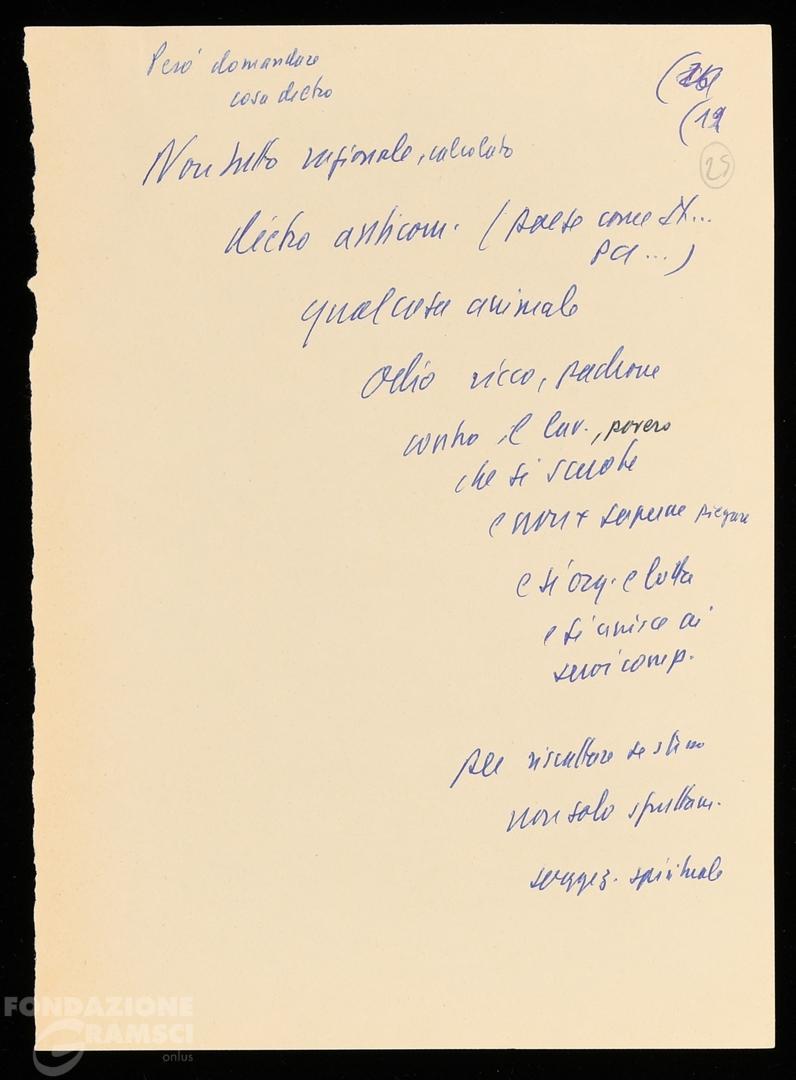 Però domandare
cosa dietro
(19
25
Non tutto razionale, calcolato
dietro anticom. (paese come It...
PCI...)
qualcosa animale
Odio ricco, padrone
contro il lav., povero
che si scuote
e non + sapere piegare
e si org. e lotta
e si unisce ai
suoi comp.
per riscattare se stesso
non solo sfruttam.
soggez. spirituale
FONDAZIONE
GRAMSCI
onlus